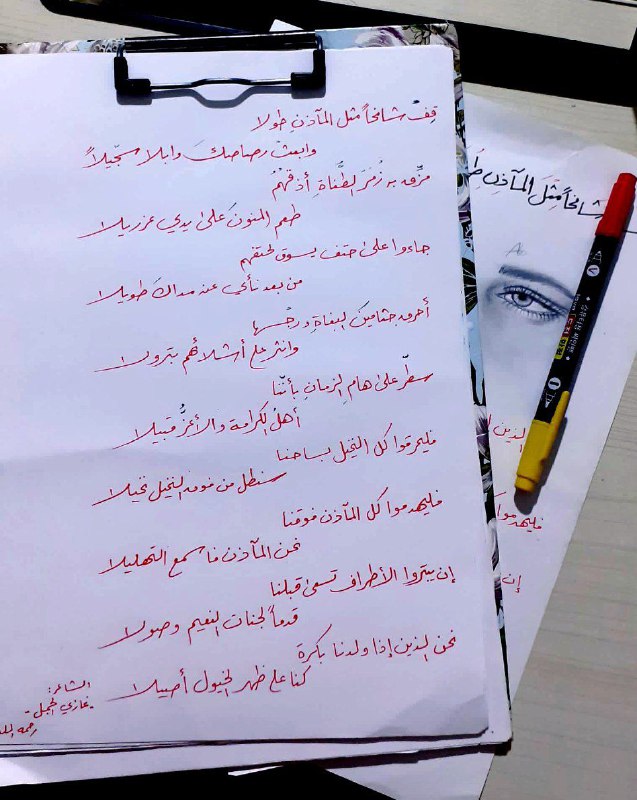 قِفْ شامخاً مثل المآذنِ طولا
وابعثْ رصاصكَ وابلا سجّيلاً
مزّق به زُمَرَ الطُّغاةِ أذقهُمُ
طعم المنون على يدي عزريلا
جاءوا على حتف يسوق لحتفهم
من بعد نأي عنه مداك طويلا
أحرق جثامين البغاة ورجسها
وانثر على أشلائهم بترولا
سطّر على هامِ الزمانِ بأننا
أهلُ الكرامة والأعزُّ قبيلا
فليحرقوا كل النخيل بساحنا
سنطل من فوق النخيل نخيلا
فليهدموا كل المآذن فوقنا
نحن المآذن فاسمع التهليلا
إن يبتروا الأطراف تسعى قبلنا
قدماً لجنات النعيم وصولا
نحن الذين إذا ولدنا بكرة
كنا على ظهر الخيول أصيلا
الشاعر:
غازي الجمل
رحمه الله
شامخاً مِثلَ المآذنِ
الذين
فليهدموا
إن